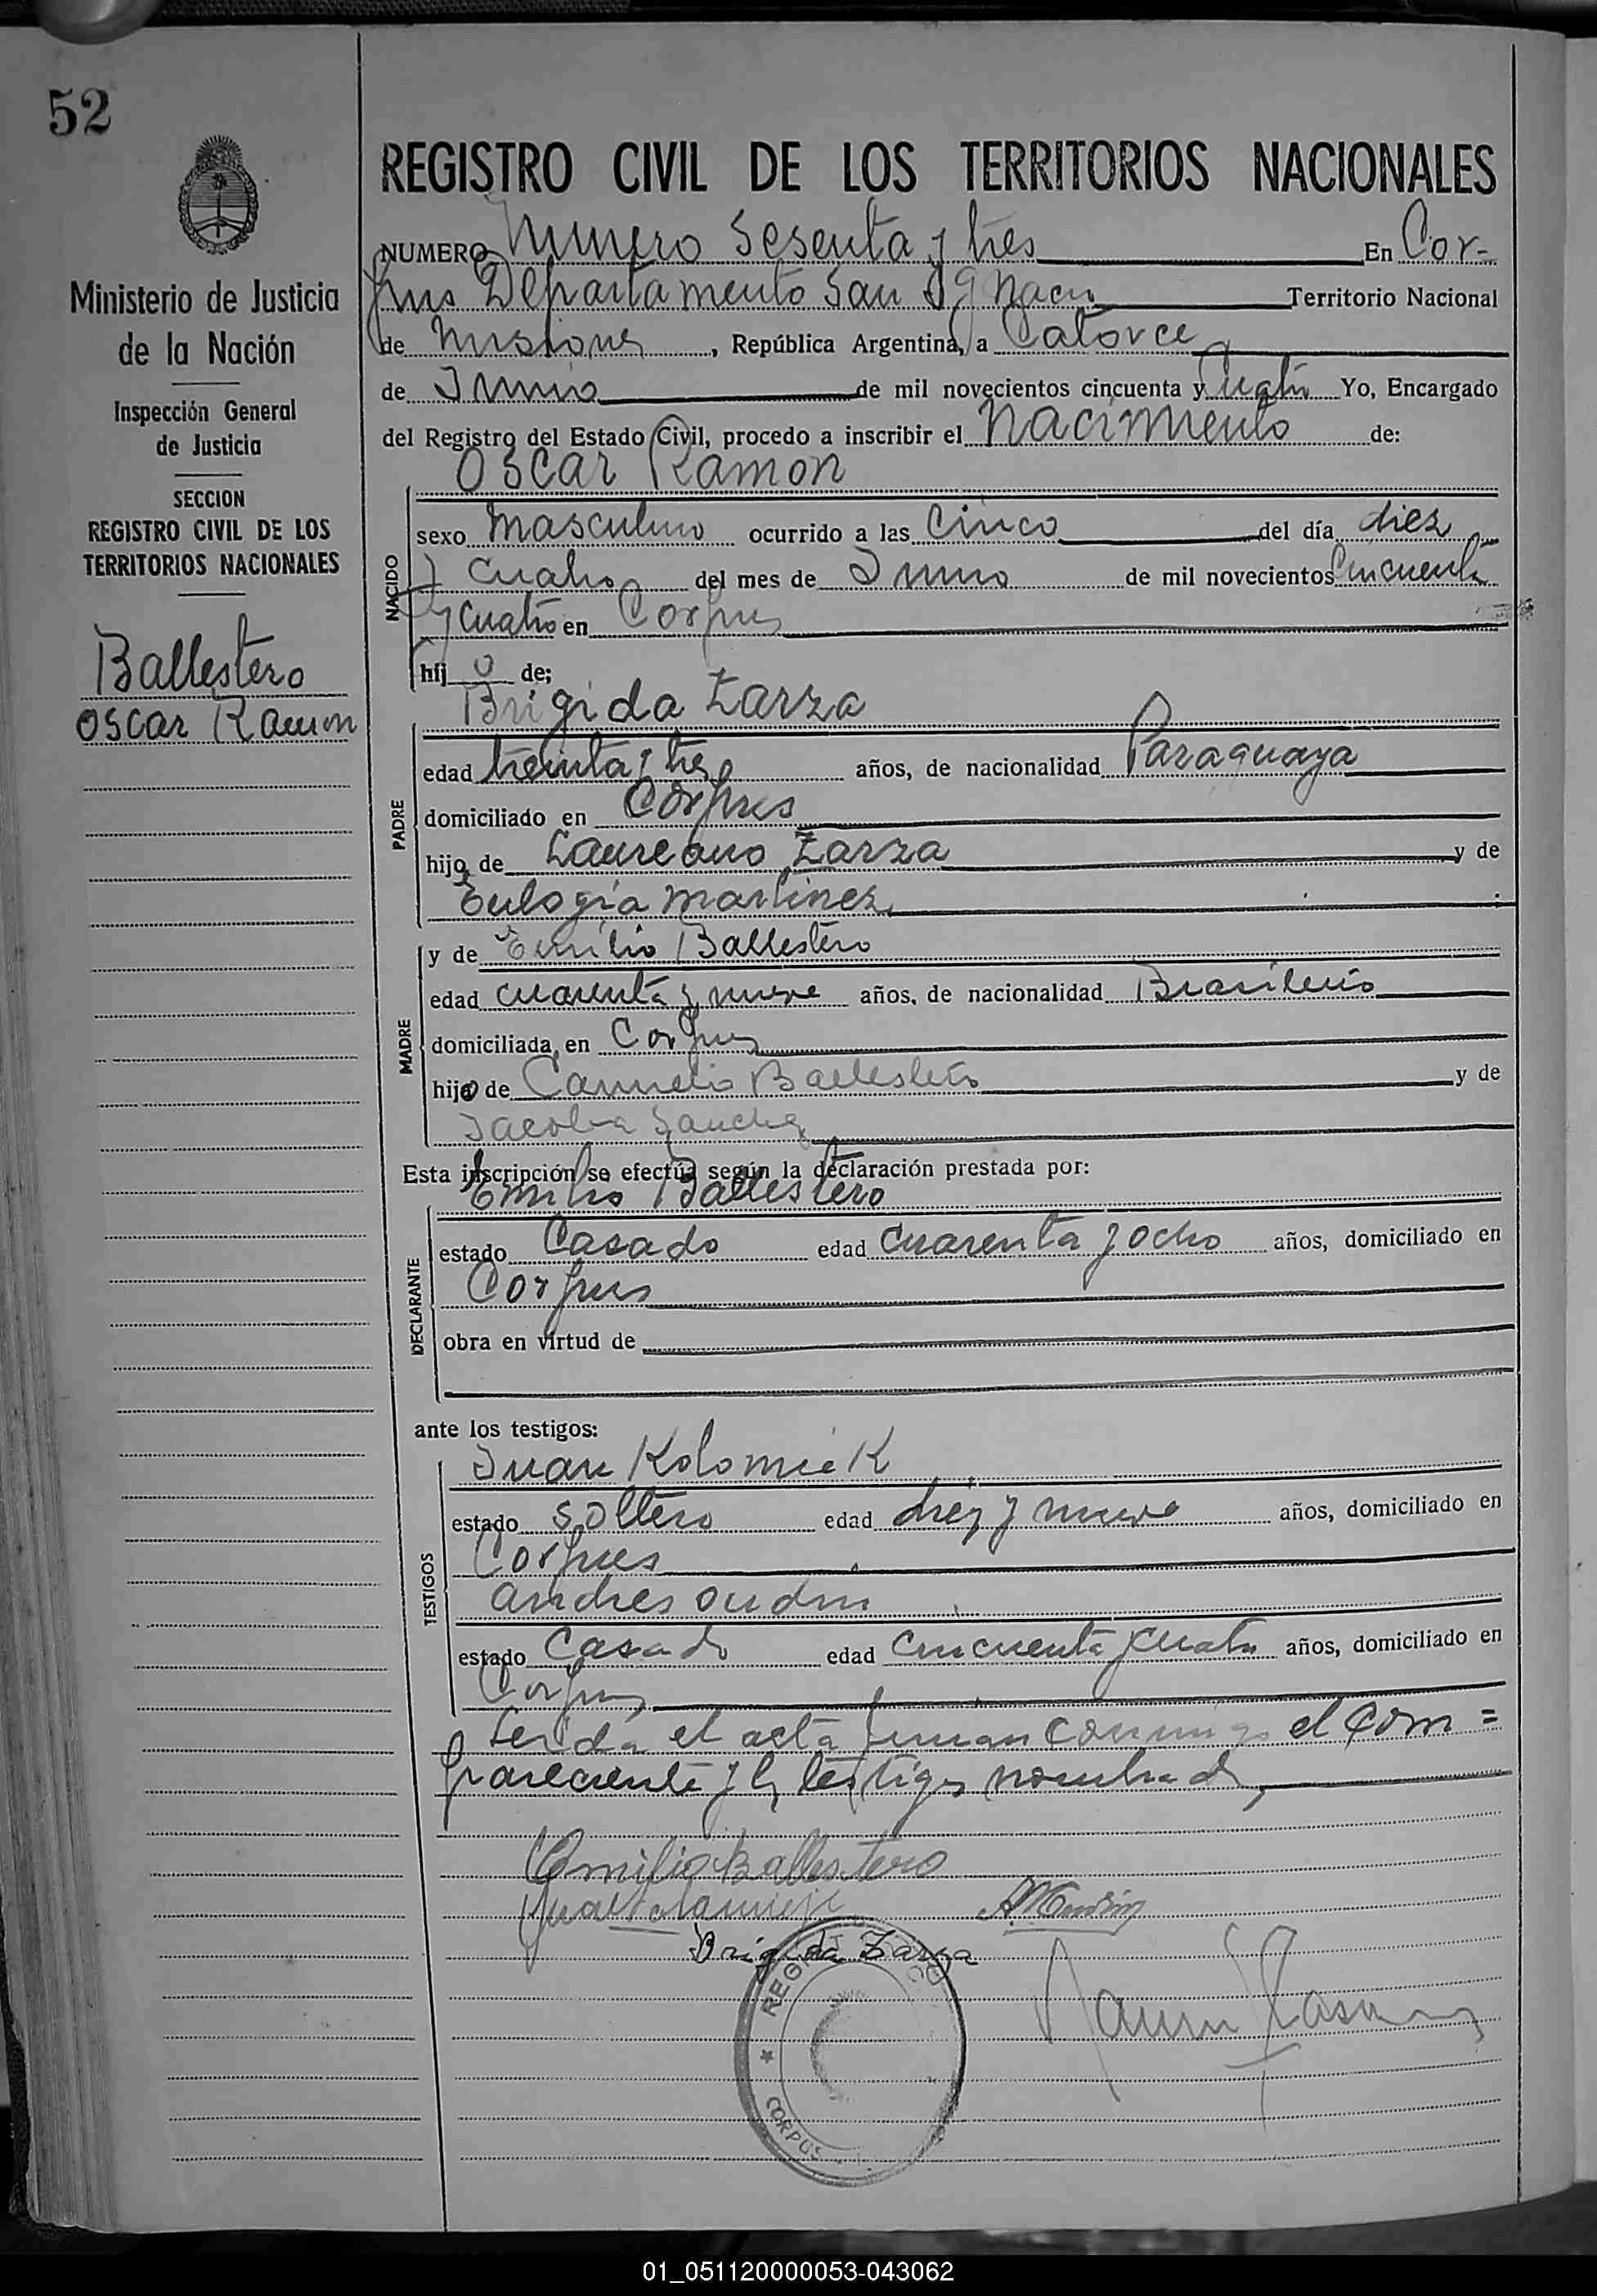 52
Ministerio de Justicia
de la Nación
Inspección General
de Justicia
SECCION
REGISTRO CIVIL DE LOS
TERRITORIOS NACIONALES
Ballestero
Oscar Ramon
REGISTRO CIVIL DE LOS TERRITORIOS NACIONALES
NUMERO Numero Sesenta y tres En Cor=
pus Departamento San Ignacio Territorio Nacional
de Misiones, República Argentina, a Catorce
de Junio de mil novecientos cincuenta y Cuatro Yo, Encargado
del Registro del Estado Civil, procedo a inscribir el Nacimiento de:
Oscar Ramon
NACIDO
sexo Masculino ocurrido a las Cinco del día diez
y Cuatro del mes de Junio de mil novecientos Cincuenta
y Cuatro en Corpus
hij o de;
Brigida Zarza
PADRE
edad treinta y tres años, de nacionalidad Paraguaya
domiciliado en Corpus
hijo de Laureano Zarza y de
Eulogia Martinez
MADRE
y de Emilio Ballestero
edad cuarenta y nueve años, de nacionalidad Brasilero
domiciliada en Corpus
hijo de Ballestero y de
Jacoba Sanchez
Esta inscripción se efectúa según la declaración prestada por:
Emilio Ballestero
DECLARANTE
estado Casado edad Cuarenta y ocho años, domiciliado en
Corpus
obra en virtud de
ante los testigos:
TESTIGOS
Juan Kolomiek
estado Soltero edad diez y nueve años, domiciliado en
Corpus
Andres Oudin
estado Casado edad Cincuenta y Cuatro años, domiciliado en
Corpus
Leida el acta firman conmigo el Com=
pareciente y los testigos nombrados
Emilio Ballestero
Juan
Brigida Zarza
REGISTRO
CORPUS
01_051120000053-043062